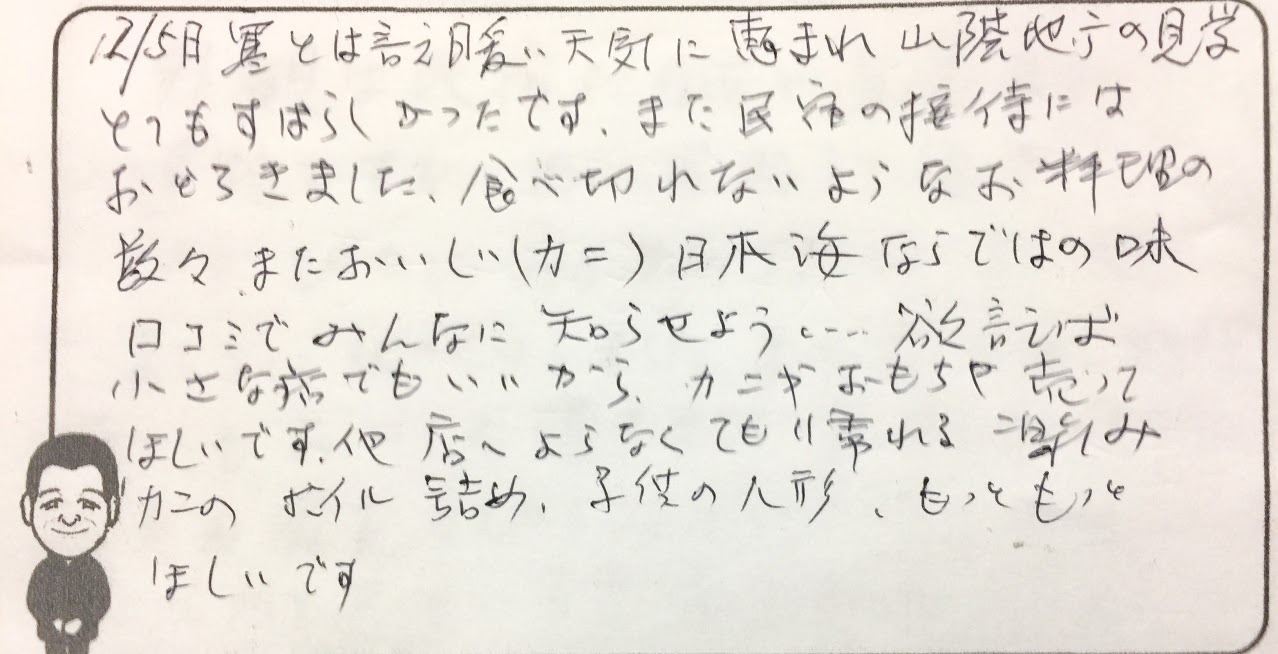 12/5日 寒とは言え暖い天気に恵まれ 山陰地方の見学
とてもすばらしかったです、また民宿の接待には
おどろきました、食べ切れないようなお料理の
数々、またおいしい(カニ)日本海ならではの味
口コミでみんなに知らせよう…… 欲言えば
小さな店でもいいから、カニやおもちゃ売って
ほしいです、他店へよらなくても帰れる楽しみ
カニのボイル詰め、子供の人形、もっともっと
ほしいです